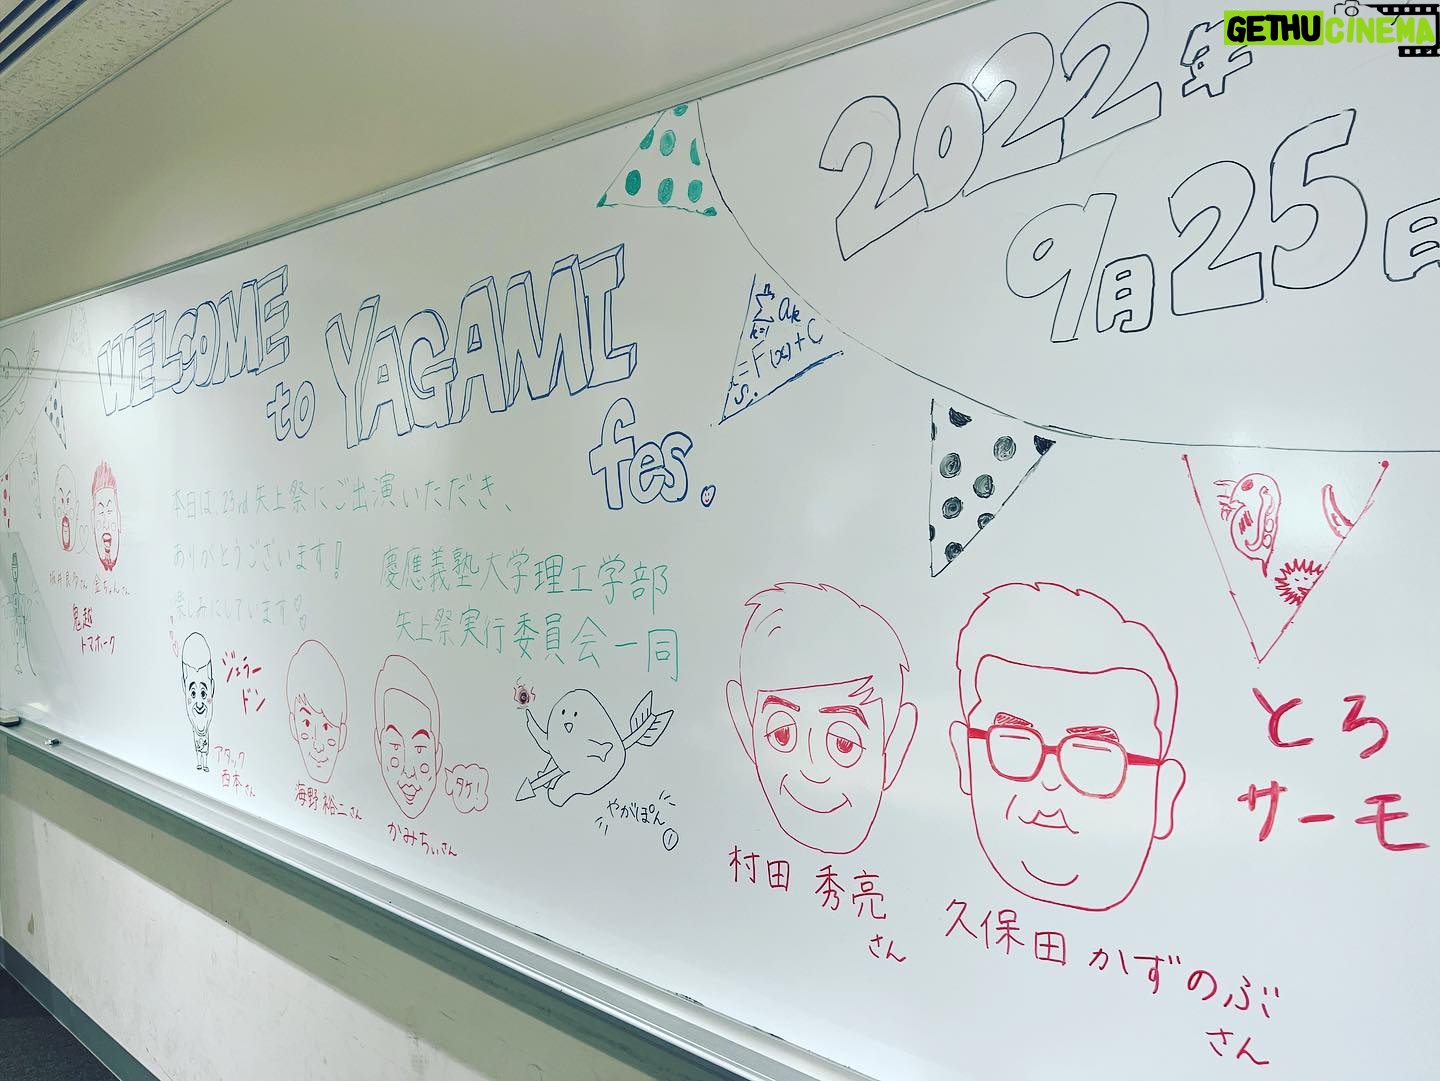 GETHU CINEMA
2022年
9月25日
WELCOME
to YAGAMI
fes.
n
Σ ak
k=1
= F(x)+C
本日は、23rd 矢上祭にご出演いただき、
ありがとうございます!
楽しみにしています
慶應義塾大学理工学部
矢上祭実行委員会一同
坂井良多さん 金ちゃんさん
鬼越
トマホーク
ジェラー
ドン
アタック
西本さん
海野裕二さん
かみちぃさん
タケ!
やがぽん
とろ
サーモ
村田 秀亮
さん
久保田 かずのぶ
さん